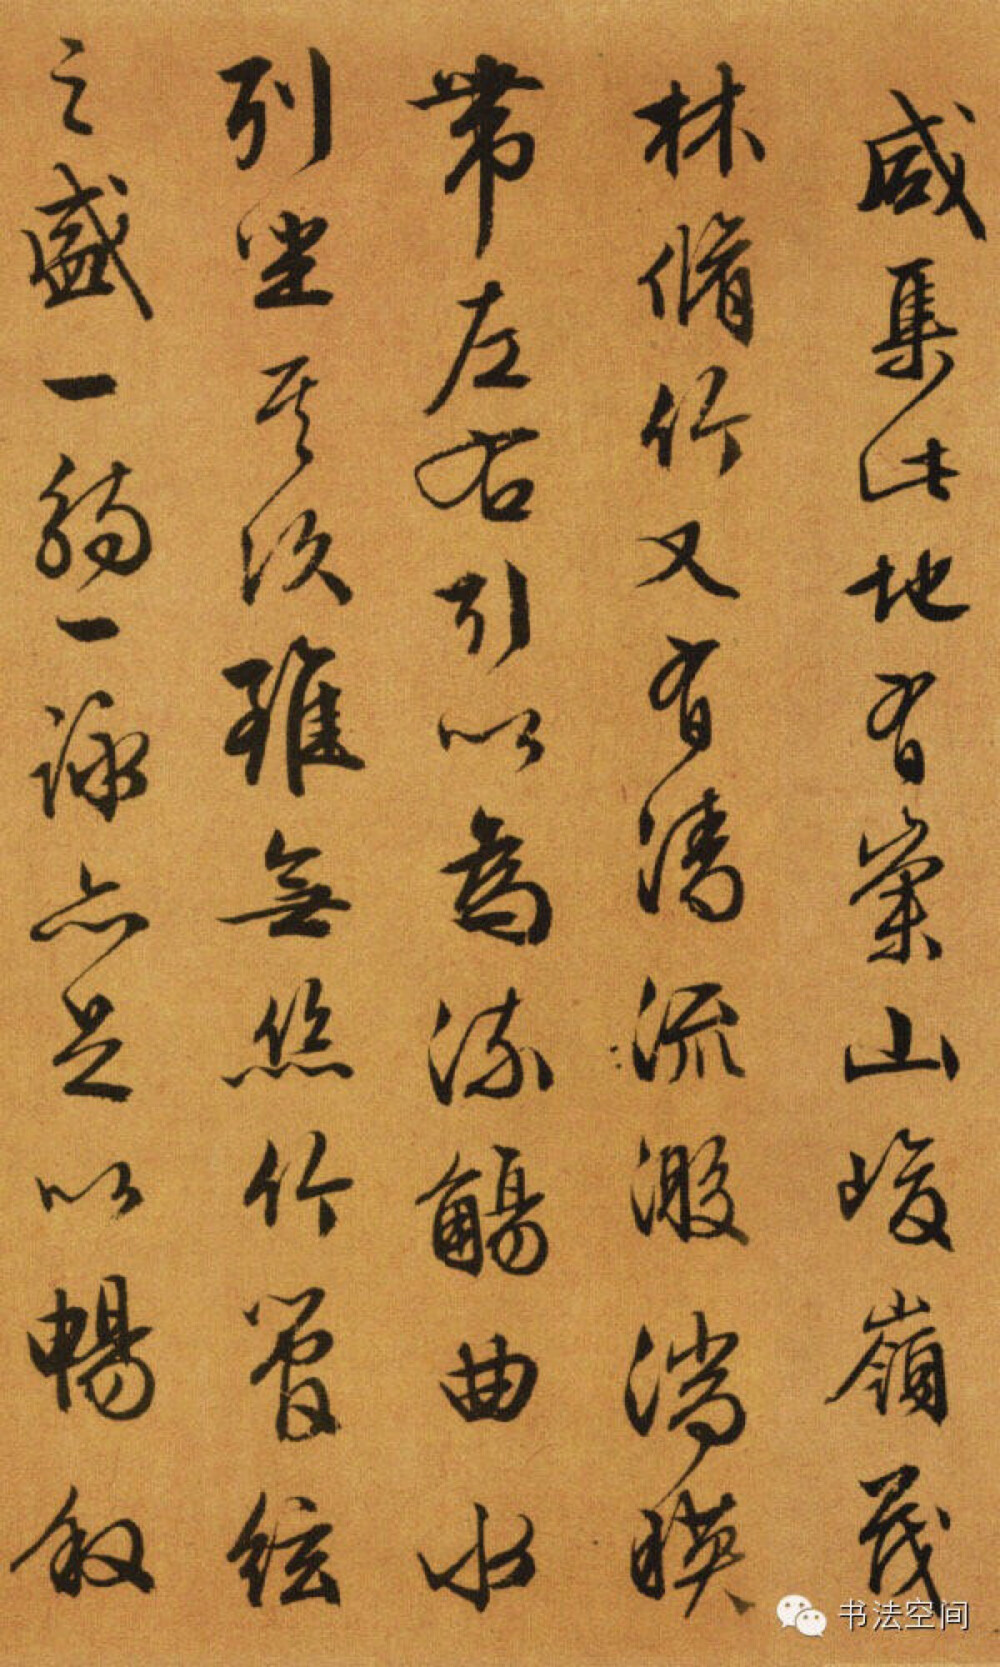 咸集此地有崇山峻嶺茂
林脩竹又有清流激湍暎
帶左右引以為流觴曲水
列坐其次雖無絲竹管絃
之盛一觴一詠亦足以暢叙
书法空间